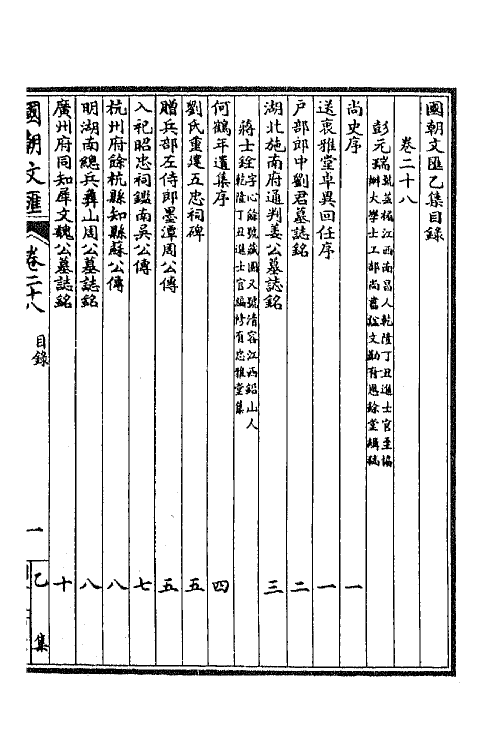 國朝文匯乙集目錄
卷二十八
彭元瑞號芸楣江西南昌人乾隆丁丑進士官至協
辦大學士工部尚書諡文勤有恩餘堂輯稿
尚史序 一
送袁雅堂卓異回任序 一
戶部郎中劉君墓誌銘 二
湖北施南府通判姜公墓誌銘 三
蔣士銓字心餘號藏園又號清容江西鉛山人
乾隆丁丑進士官編修有忠雅堂集
何鶴年遺集序 四
劉氏重建五忠祠碑 五
贈兵部左侍郎墨潭周公傳 五
入祀昭忠祠鑑南吳公傳 七
杭州府餘杭縣知縣蘇公傳 八
明湖南總兵彝山周公墓誌銘 八
廣州府同知犀文魏公墓誌銘 十
國朝文匯
卷二十八
目錄
一
乙集